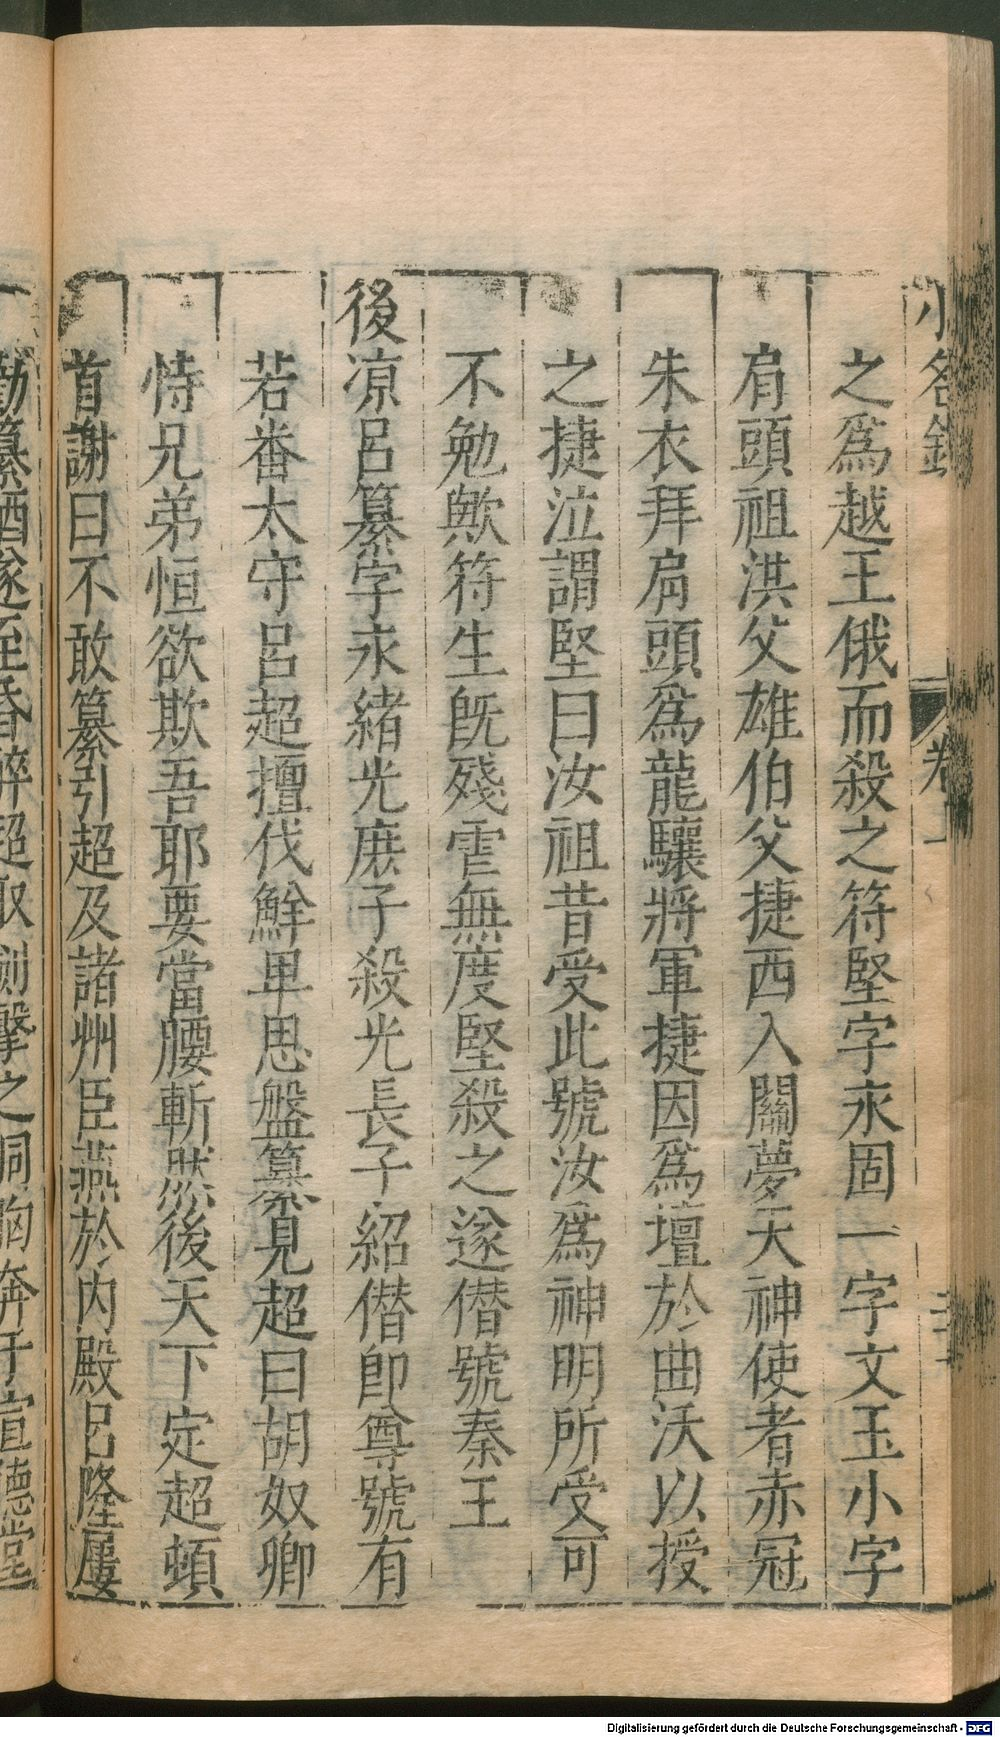 小名錄 卷一
之爲越王俄而殺之符堅字永固一字文玉小字
肩頭祖洪父雄伯父捷西入關夢天神使者赤冠
朱衣拜肩頭爲龍驤將軍捷因爲壇於曲沃以授
之捷泣謂堅曰汝祖昔受此號汝爲神明所受可
不勉歟符生旣殘虐無度堅殺之遂僣號秦王
後凉呂纂字永緒光庶子殺光長子紹僣卽尊號有
若番太守呂超擅伐鮮卑思盤纂見超曰胡奴卿
恃兄弟恒欲欺吾耶要當腰斬然後天下定超頓
首謝曰不敢纂引超及諸州臣燕於內殿呂隆屢
勸纂酒遂至昏醉超取劍擊之洞胸奔于宣德堂
Digitalisierung gefördert durch die Deutsche Forschungsgemeinschaft - DFG